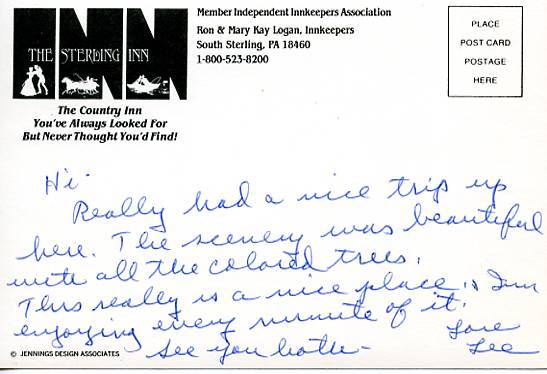 THE STERLING INN
The Country Inn
You've Always Looked For
But Never Thought You'd Find!
Member Independent Innkeepers Association
Ron & Mary Kay Logan, Innkeepers
South Sterling, PA 18460
1-800-523-8200
PLACE
POST CARD
POSTAGE
HERE
Hi
Really had a nice trip up
here. The scenery was beautiful
with all the colored trees.
This really is a nice place, & Im
enjoying every minute of it.
See you both -
Love
Lee
© JENNINGS DESIGN ASSOCIATES